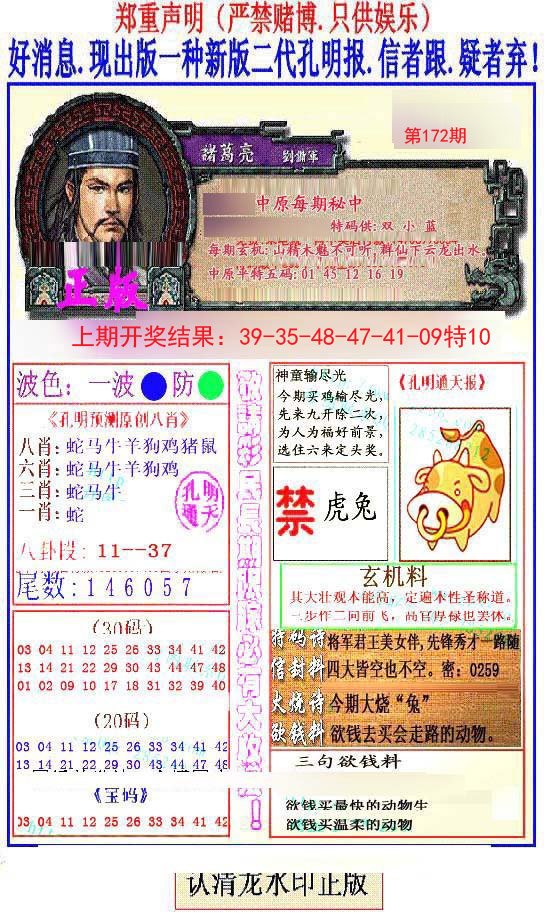 郑重声明（严禁赌博.只供娱乐）
好消息.现出版一种新版二代孔明报.信者跟.疑者弃!
第172期
諸葛亮 劉備軍
中原每期秘中
特码供: 双 小 蓝
每期玄机: 山精木魅不可听, 群仙下云龙出水。
中原半特五码: 01 45 12 16 19
正版
上期开奖结果：39-35-48-47-41-09特10
波色：一波 防
《孔明预测原创八肖》
八肖: 蛇马牛羊狗鸡猪鼠
六肖: 蛇马牛羊狗鸡
三肖: 蛇马牛
一肖: 蛇
孔明通天
八卦段: 11--37
尾数: 146057
(30码)
03 04 11 12 25 26 33 34 41 42
13 14 21 22 29 30 43 44 47 48
01 02 09 10 17 18 31 32 39 40
(20码)
03 04 11 12 25 26 33 34 41 42
13 14 21 22 29 30 43 44 47 48
《宝码》
03 04 11 12 25 26 33 34 41 42
神童输尽光
今期买鸡输尽光，
先来九开除二次，
为人为福好前景，
选住六来定头奖。
《孔明通天报》
禁 虎兔
玄机料
其大壮观本能高，定遍本性圣称道。
三步作二向前飞，高官厚禄也罢休。
特码诗 将军君王美女伴,先锋秀才一路随
信封料 四大皆空也不空。密: 0259
火烧诗 今期大烧“兔”
欲钱料 欲钱去买会走路的动物。
三句欲钱料
欲钱买最快的动物生
欲钱买温柔的动物
认清龙水印正版